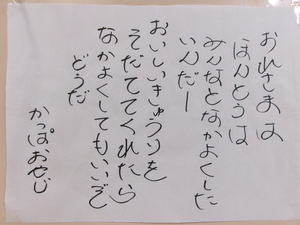 おれさまは
ほんとうは
みんなとなかよくした
いんだー
おいしいきゅうりを
そだててくれたら
なかよくしてもいいぞ
どうだ
かっぱおやじ